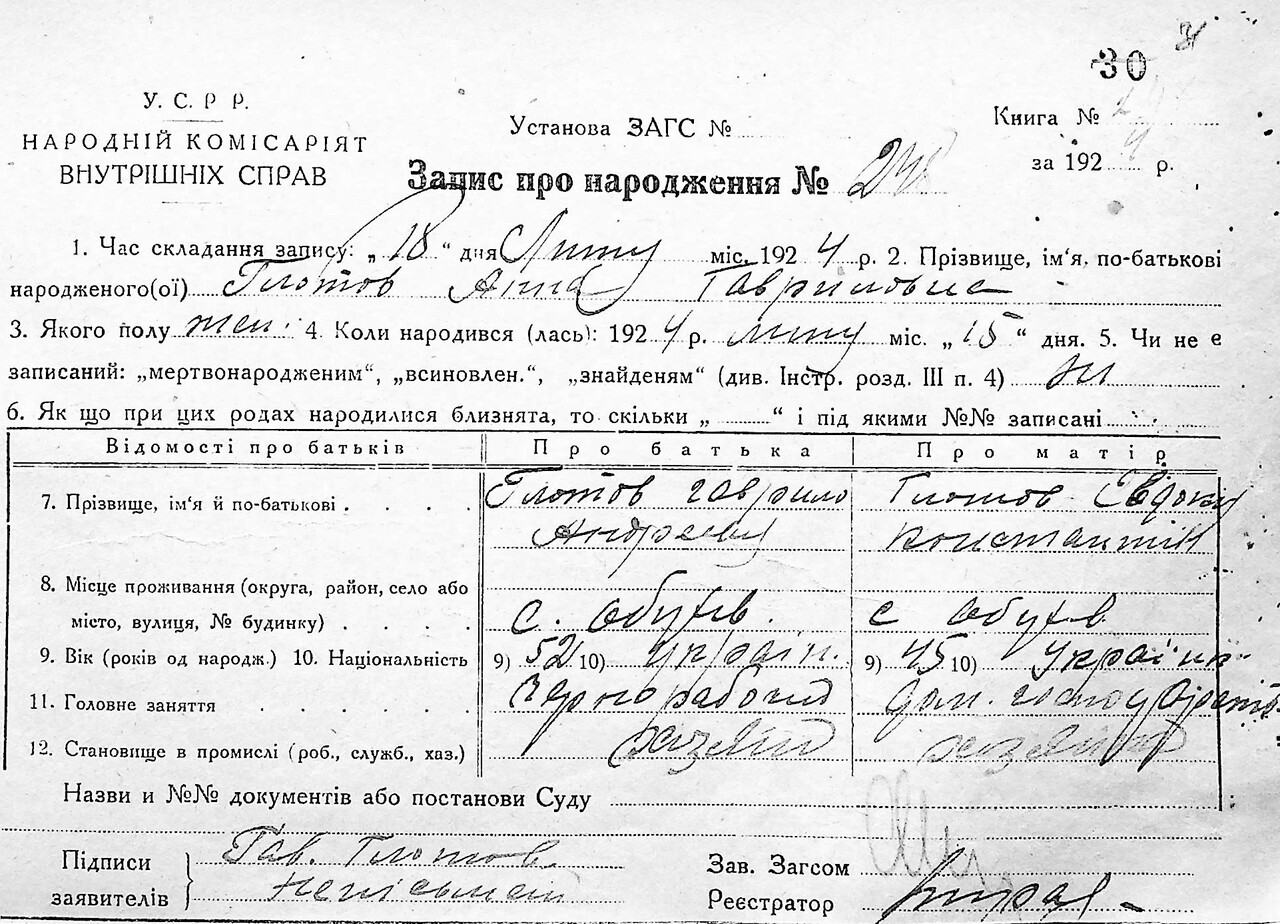 30
У. С. Р Р.
НАРОДНІЙ КОМІСАРІЯТ
ВНУТРІШНІХ СПРАВ
Установа ЗАГС №
Книга №
за 192 4 р.
Запис про народження №
1. Час складання запису: „ 18 “ дня Литу міс. 192 4 р. 2. Прізвище, ім'я, по-батькові
народженого(ої) Глотов Анна Гавриловна
3. Якого полу жен. 4. Коли народився (лась): 192 4 р. литу міс. „ 15 “ дня. 5. Чи не є
записаний: „мертвонародженим“, „всиновлен.“, „знайденям“ (див. Інстр. розд. III п. 4) ні
6. Як що при цих родах народилися близнята, то скільки „ “ і під якими №№ записані
Відомості про батьків Про батька Про матір
7. Прізвище, ім'я й по-батькові . . . . Глотов Гаврило Глотов Євдоки
Андрееву Константин
8. Місце проживання (округа, район, село або
місто, вулиця, № будинку) . . . . с. Обухів с Обухів
9. Вік (років од народж.) 10. Національність 9) 52 10) україн. 9) 45 10) українк.
11. Головне заняття . . . . . . Чернорабочий дом.
12. Становище в промислі (роб., служб., хаз.) хазяїн
Назви и №№ документів або постанови Суду
Підписи
заявителів
Гав. Глотов
Неписьмен
Зав. Загсом
Реєстратор